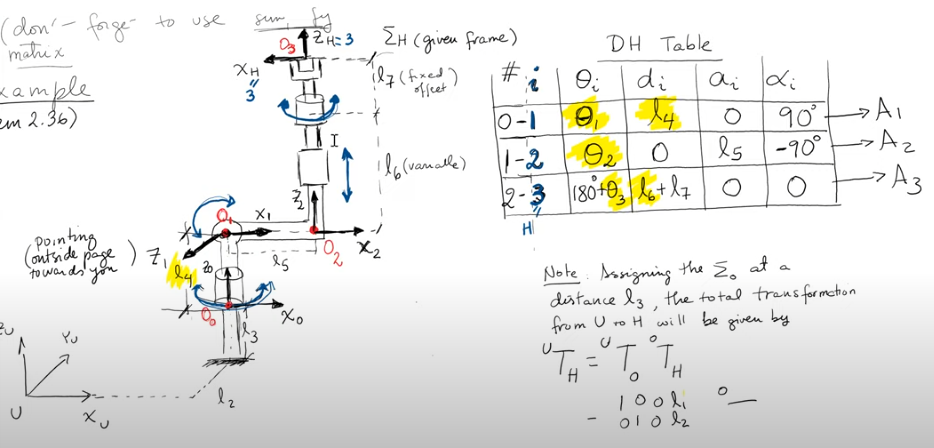 (don't forge- to use sum, fy
matrix
xample
em 2.36)
O3 ZH=3
ΣH (given frame)
XH
=
3
l7 (fixed
offset)
I
l6 (variable)
Z2
O1 X1
O2 X2
pointing
(outside page
towards you)
Z1
l4
Z0
l5
O0
X0
l3
l2
ZU
YU
U
XU
DH Table
# i θi di ai αi
0-1 θ1 l4 0 90° → A1
1-2 θ2 0 l5 -90° → A2
2-3 180°+θ3 l6+l7 0 0 → A3
=
H
Note: Assigning the Σ0 at a
distance l3, the total transformation
from U to H will be given by
ᵁTH = ᵁT0 ⁰TH
1 0 0 l1 0
- 0 1 0 l2